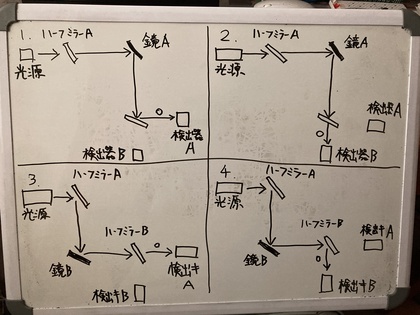 1.
ハーフミラーA
鏡A
光源
検出器
A
検出器B
2.
ハーフミラーA
鏡A
光源
検出器A
検出器B
3.
ハーフミラーA
光源
ハーフミラーB
鏡B
検出キ
A
検出キB
4
ハーフミラーA
光源
ハーフミラーB
検出キA
鏡B
検出キB